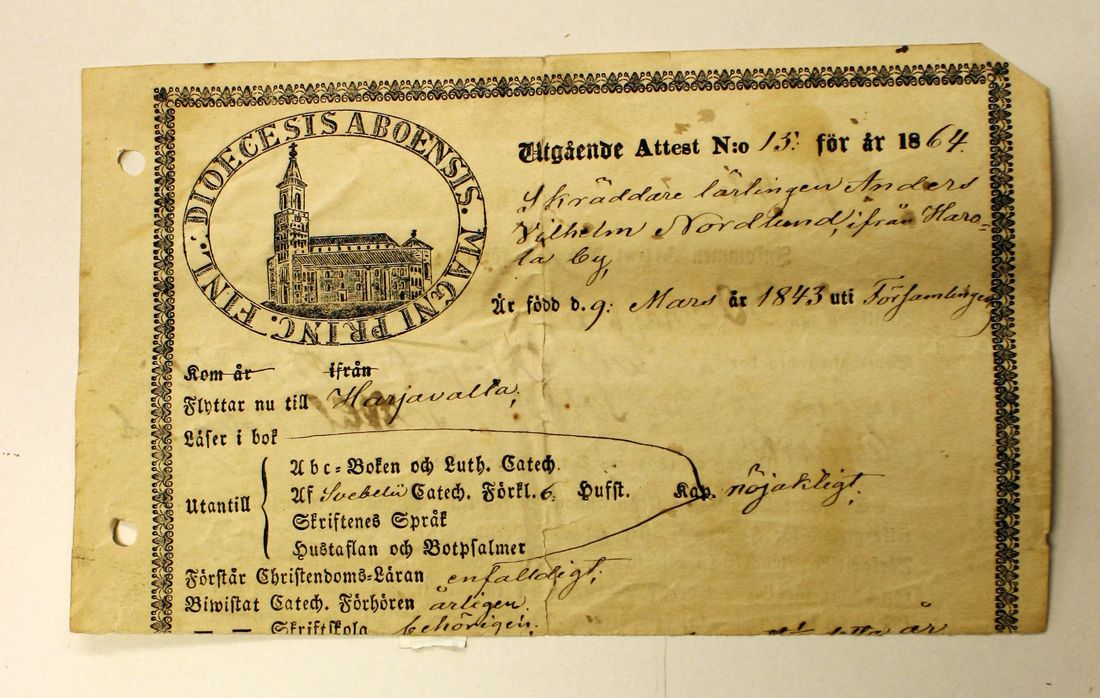 DIOECESIS ABOENSIS. MAGNI PRINC. FINL.
Utgående Attest N:o 15: för år 1864.
Skräddare lärlingen Anders
Vilhelm Nordlund, ifrån Haro-
la by,
Är född d. 9: Mars år 1843 uti Församlingen
Kom år ifrån
Flyttar nu till Harjavalta,
Läser i bok
Abc-Boken och Luth. Catech.
Utantill Af Svebelii Catech. Förkl. 6. Hufst. Kap. nöjaktigt,
Skriftenes Språk
Hustaflan och Botpsalmer
Förstår Christendoms-Läran enfalldigt,
Biwistat Catech. Förhören årligen.
— — Skriftskola behörigen,
detta år